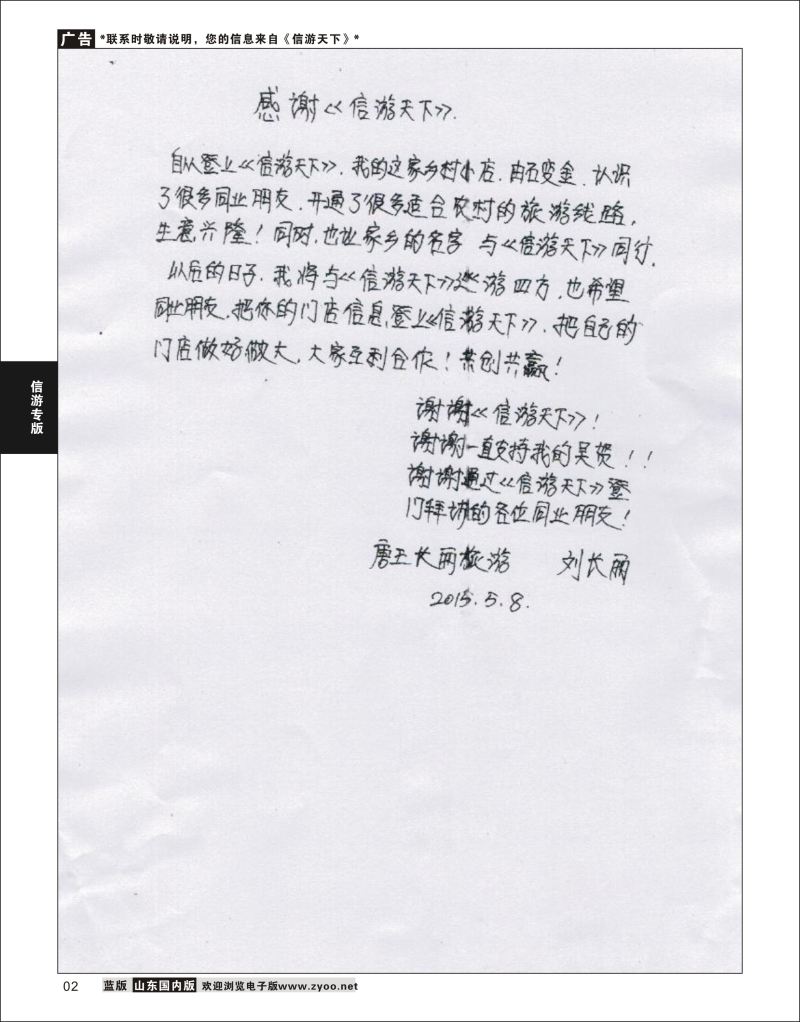 广告 *联系时敬请说明，您的信息来自《信游天下》*
感谢《信游天下》.
自从登上《信游天下》，我的这家乡村小店，由石变金，认识
了很多同业朋友，开通了很多适合农村的旅游线路，
生意兴隆！同时，也让家乡的名字 与《信游天下》同行，
以后的日子，我将与《信游天下》巡游四方，也希望
同业朋友，把你的门店信息，登上《信游天下》，把自己的
门店做好做大，大家互利合作！共创共赢！
谢谢《信游天下》！
谢谢一直支持我的吴贺！！
谢谢通过《信游天下》登
门拜访的各位同业朋友！
唐王长丽旅游 刘长丽
2015.5.8.
信游专版
02 蓝版 山东国内版 欢迎浏览电子版www.zyoo.net